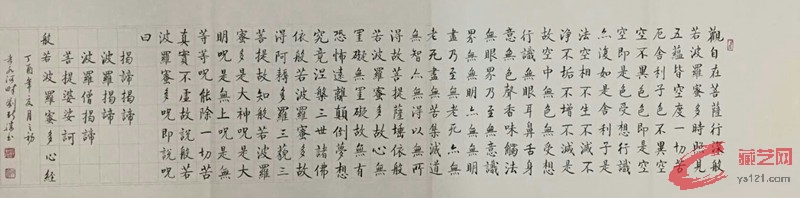 觀自在菩薩行深般
若波羅蜜多時照見
五蘊皆空度一切苦
厄舍利子色不異空
空不異色色即是空
空即是色受想行識
亦復如是舍利子是
法空相不生不滅不
淨不垢不增不減是
故空中無色無受想
行識無眼耳鼻舌身
意無色聲香味觸法
無眼界乃至無意識
界無無明亦無無明
盡乃至無老死亦無
老死盡無苦集滅道
無智亦無得以無所
得故菩提薩埵依般
若波羅蜜多故心無
罣礙無罣礙故無有
恐怖遠離顛倒夢想
究竟涅槃三世諸佛
依般若波羅蜜多故
得阿耨多羅三藐三
菩提故知般若波羅
蜜多是大神呪是大
明呪是無上呪是無
等等呪能除一切苦
真實不虛故說般若
波羅蜜多呪即說呪
曰
揭諦揭諦
波羅揭諦
波羅僧揭諦
菩提娑婆訶
般若波羅蜜多心經
丁酉年月之初
劉書
藏艺网
ys121.com